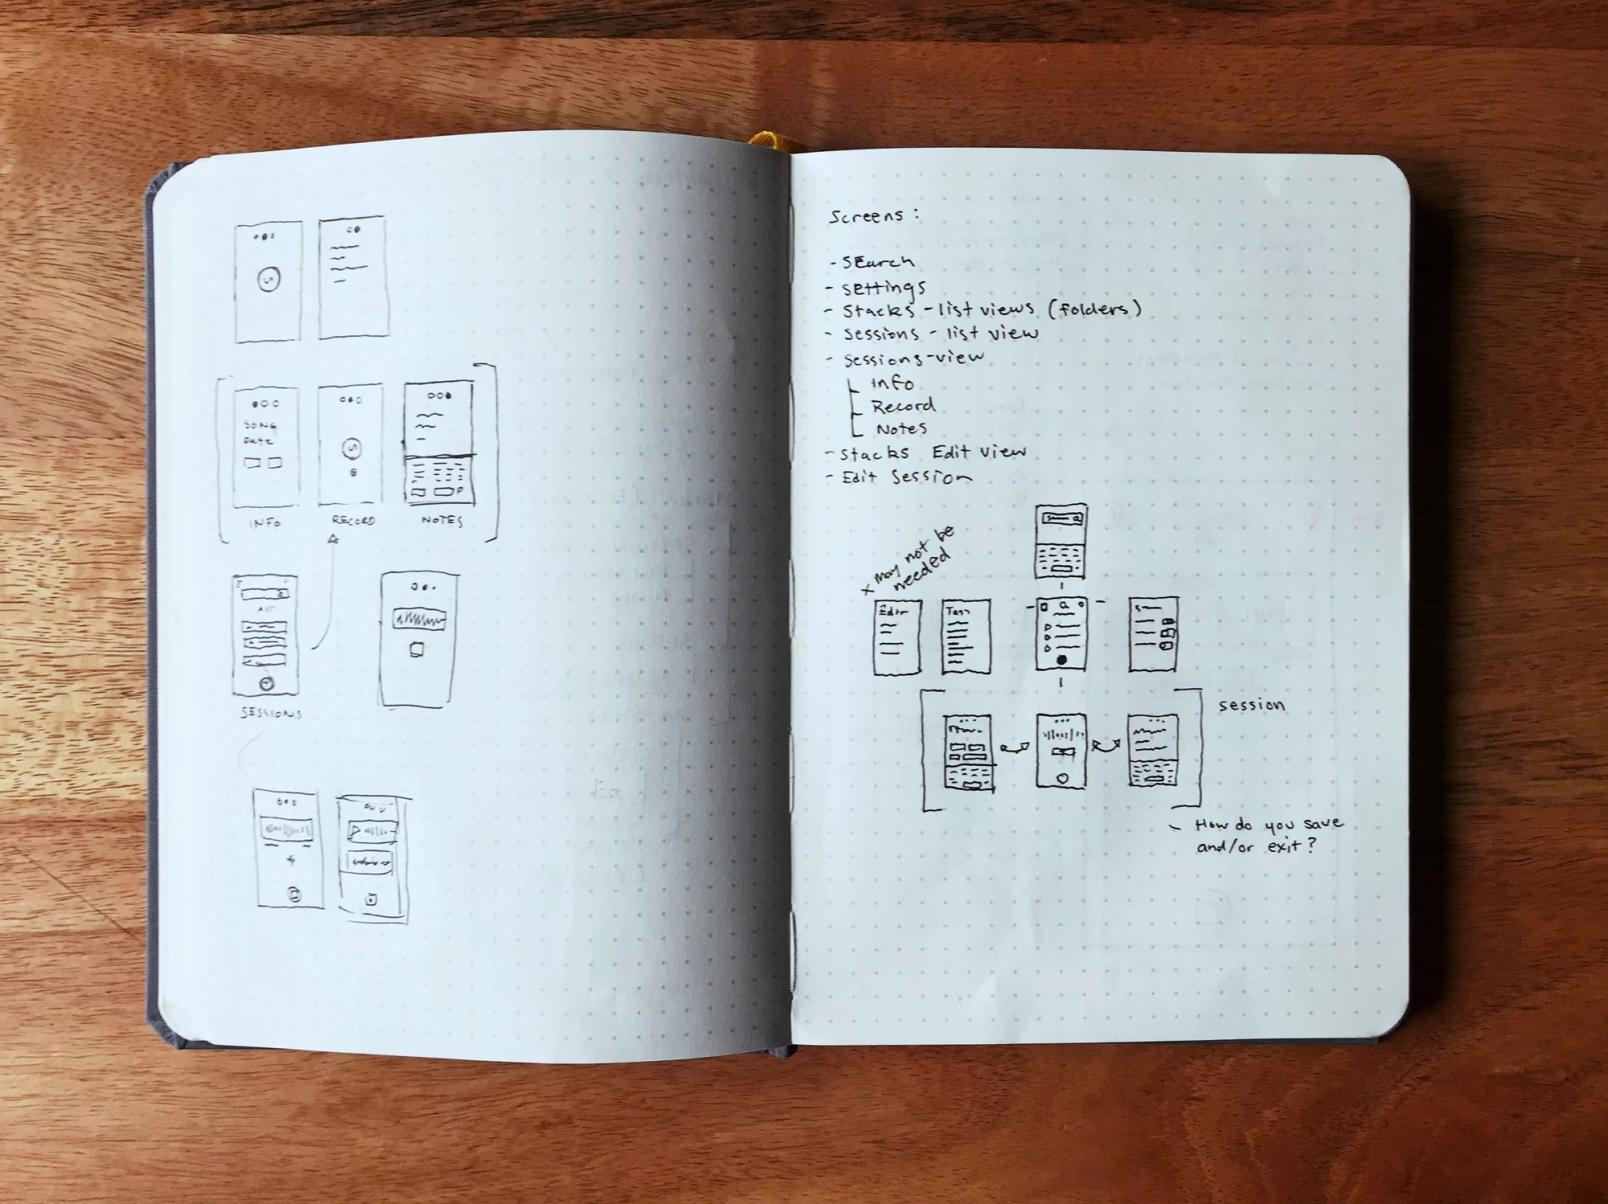 SONG
Date
INFO
RECORD
NOTES
All
SESSIONS
Screens:
- Search
- Settings
- Stacks - list views (folders)
- Sessions - list view
- Sessions-view
Info
Record
Notes
- Stacks Edit view
- Edit Session
x may not be
needed
Edit
session
- How do you save
and/or exit?